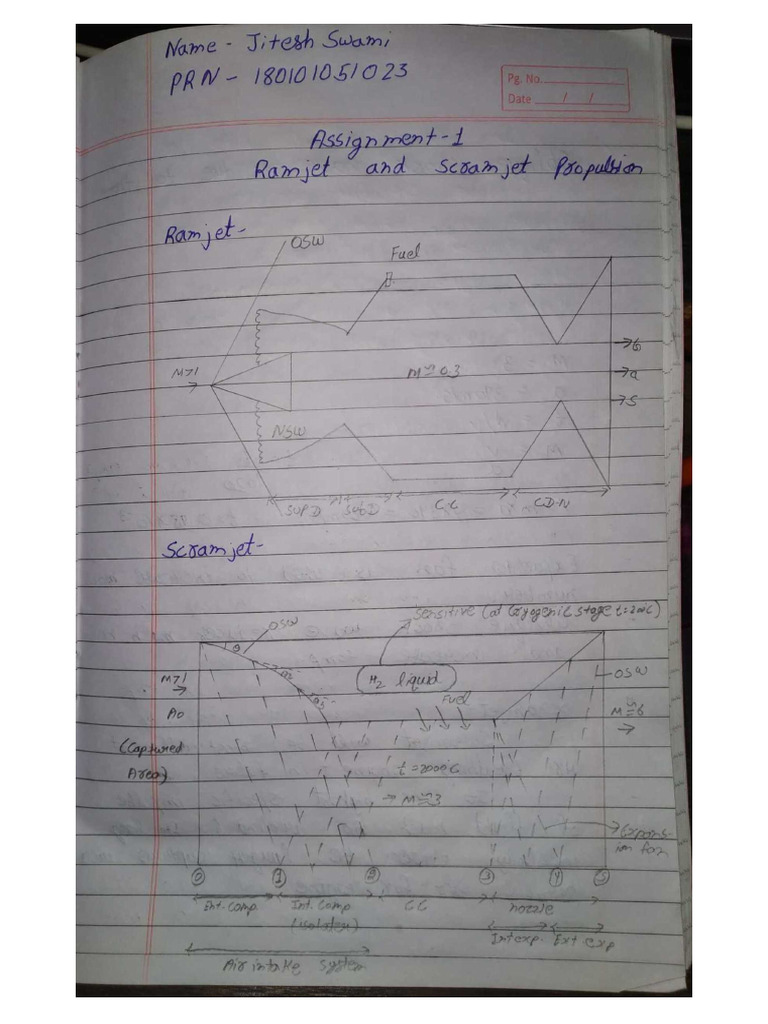 Name - Jitesh Swami
PRN - 180101051023
Pg. No.
Date / /
Assignment-1
Ramjet and Scramjet Propulsion
Ramjet-
OSW
Fuel
M>1
M≈0.3
NSW
SupD
SubD
C.C
C.D.N
Scramjet-
Sensitive (at Cryogenic stage
OSW
H2 liquid
M>1
OSW
Fuel
A0
M≅6
(Captured
Area)
→ M≈3
Expans-
ion fan
0 1 2 3 4 5
Ext. comp Int. comp CC nozzle
(isolater)
Int exp. Ext exp
Air intake system